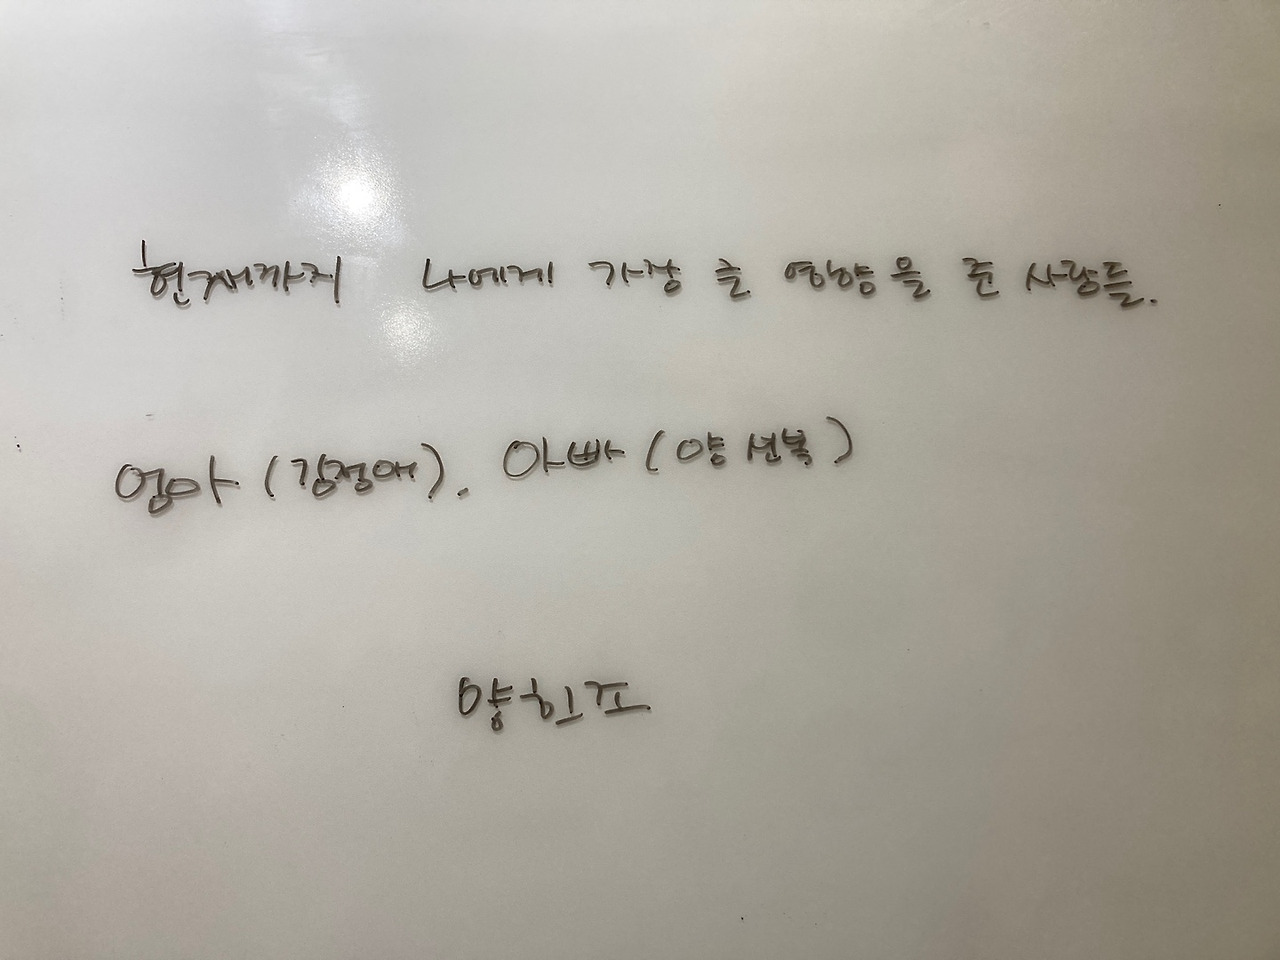 현재까지 나에게 가장 큰 영향을 준 사람들.
엄마 (김정애). 아빠 (양선복)
양힌조